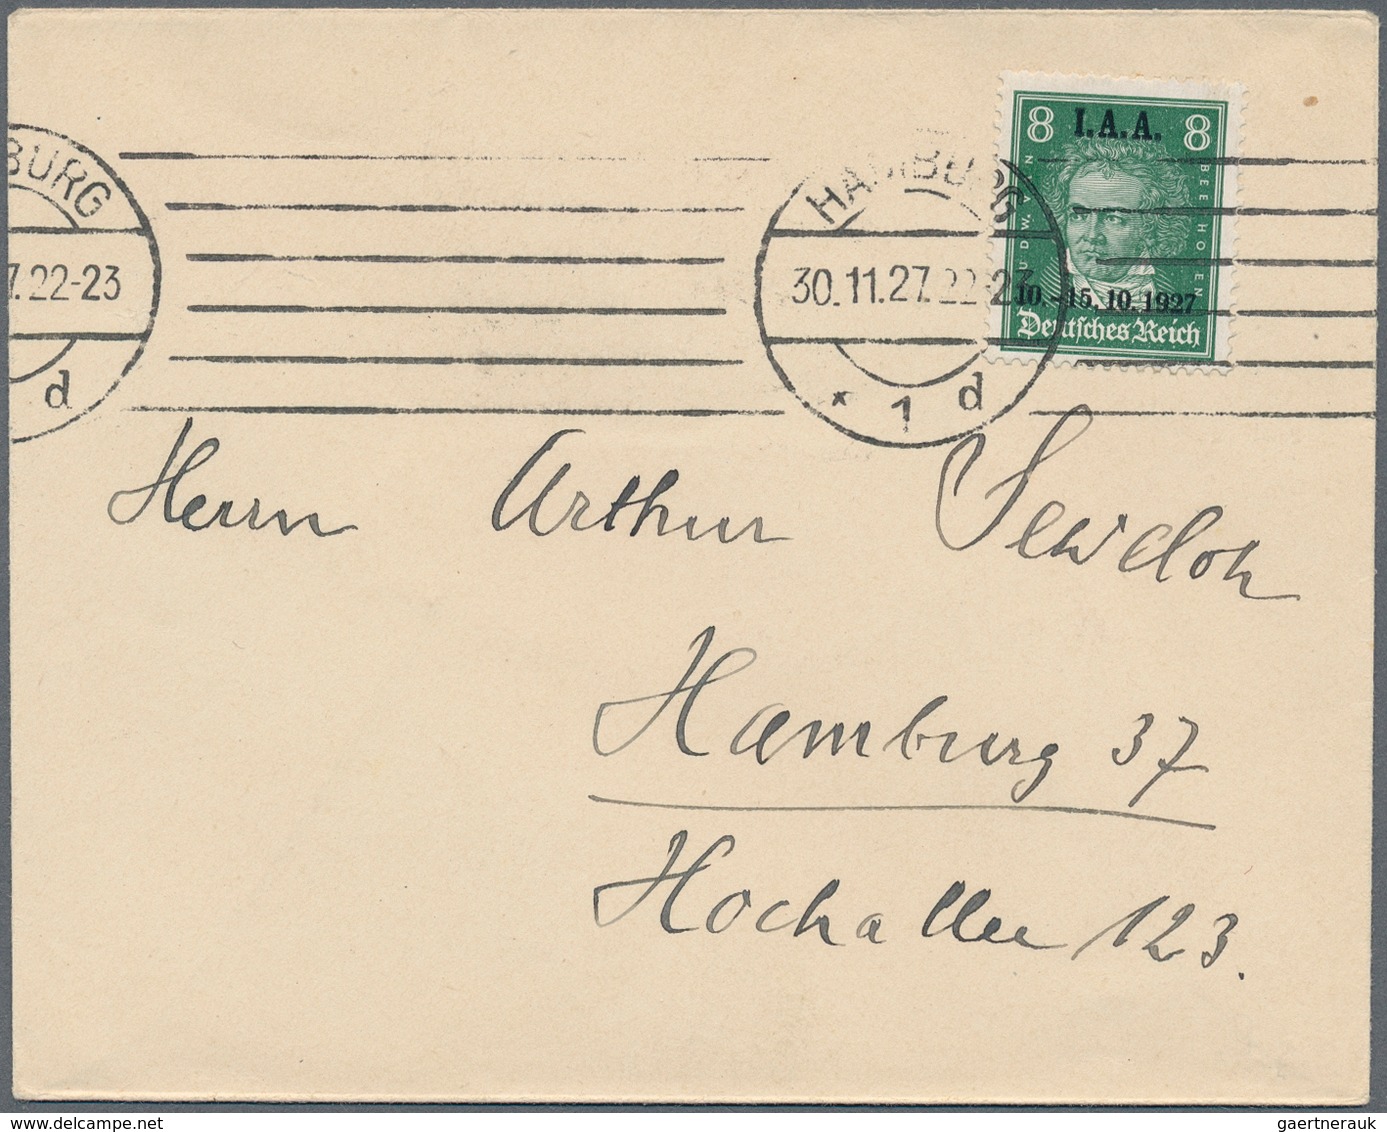 8 I.A.A. 8
BURG
HAMBURG
7.22-23
30.11.27.22-23
10.-15.10.1927
Deutsches Reich
d
* 1 d
Herrn Arthur
Hamburg 37
Hochallee 123.
gaertnerauk
delcampe.net